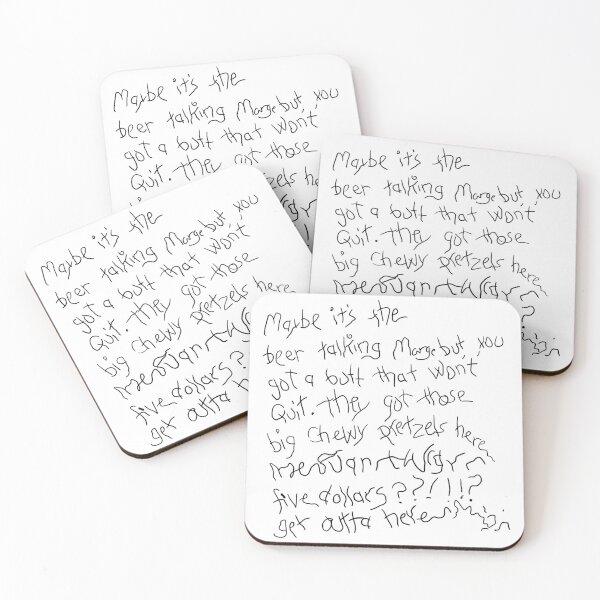 Maybe it's the
beer talking Marge but you
got a butt that won't
Quit. they got those
Maybe it's the
beer talking Marge but you
got a butt that won't
Quit. they got those
big chewy pretzels here
Maybe it's the
beer talking Marge but you
got a butt that won't
Quit. they got those
big chewy pretzels here
five dollars??
get outta
Maybe it's the
beer talking Marge but you
got a butt that won't
Quit. they got those
big chewy pretzels here
five dollars??!!!?
get outta here